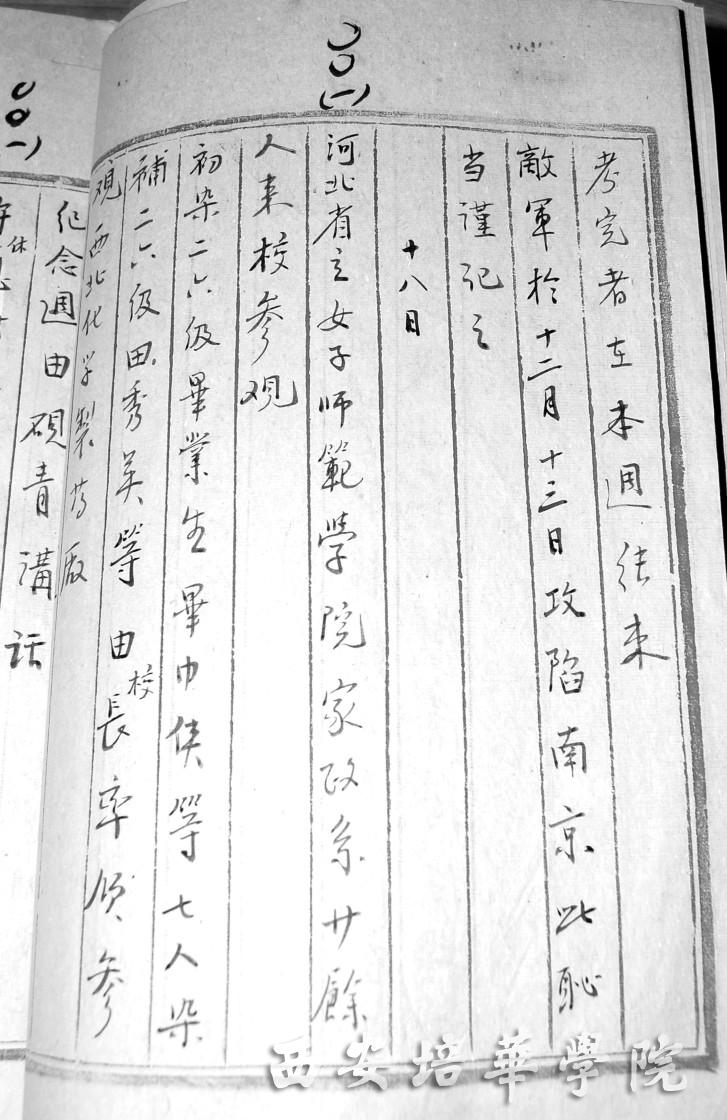 考完者在本週結束
敵軍於十二月十三日攻陷南京此恥
当謹記之
十八日
河北省立女子師範學院家政系廿餘
人来校參观
初染二六级畢業生畢巾侠等七人染
補二六级田秀英等由校長率领參
观西北化学製葯廠
紀念週由硯青講話
西安培華學院